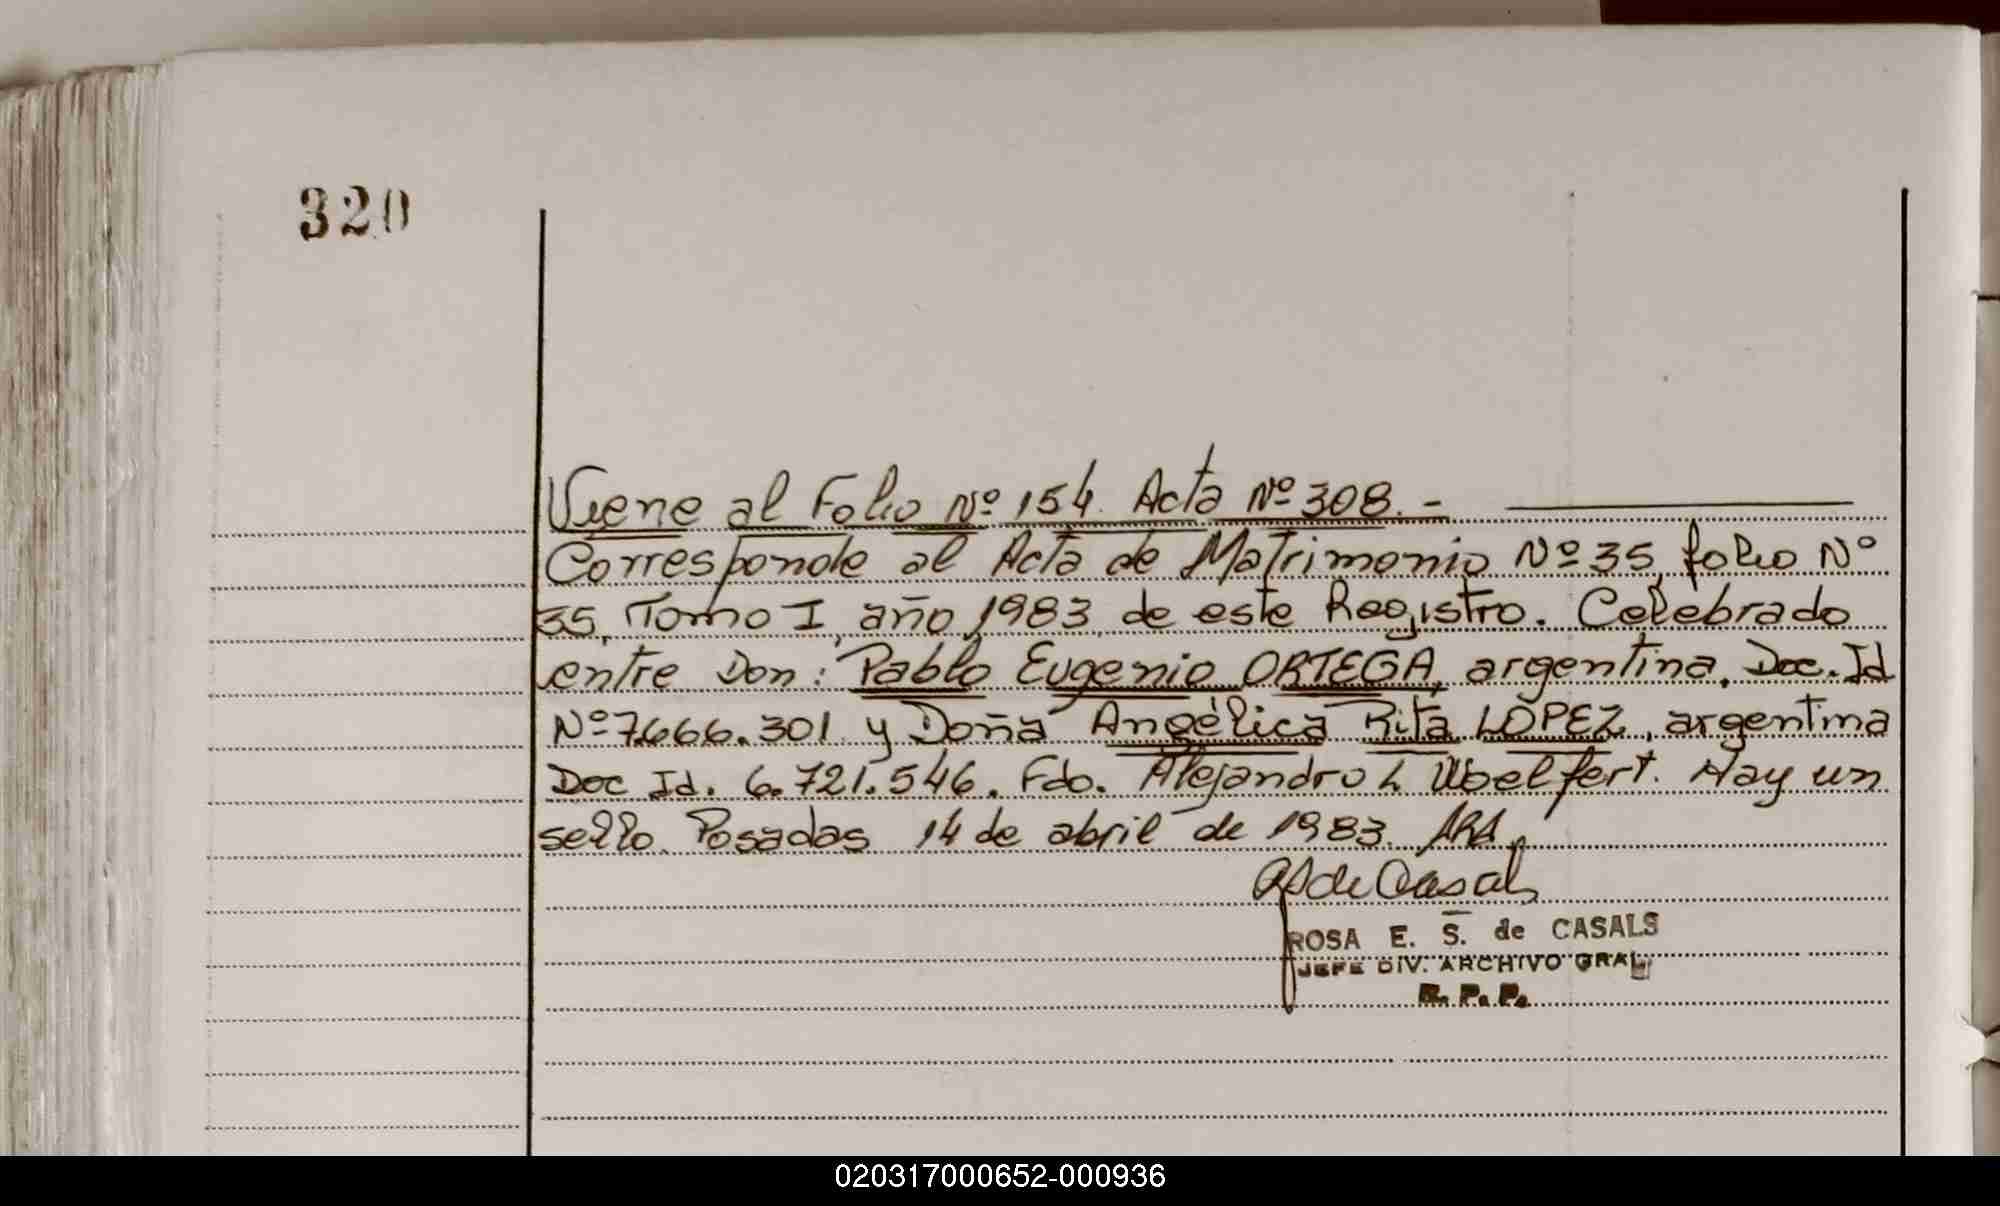 320
Viene al Folio Nº 154. Acta Nº 308. -
Corresponde al Acta de Matrimonio Nº 35, folio Nº
35, Tomo I, año 1983, de este Registro. Celebrado
entre Don: Pablo Eugenio ORTEGA, argentina, Doc. Id
Nº 7.666.301 y Doña Angélica Rita LOPEZ, argentina
Doc Id. 6.721.546. Fdo. Alejandro L Ubelfert. Hay un
sello. Posadas 14 de abril de 1983. ARA.
RS de Casals
ROSA E. S. de CASALS
JEFE DIV. ARCHIVO GRAL
R. P. P.
020317000652-000936